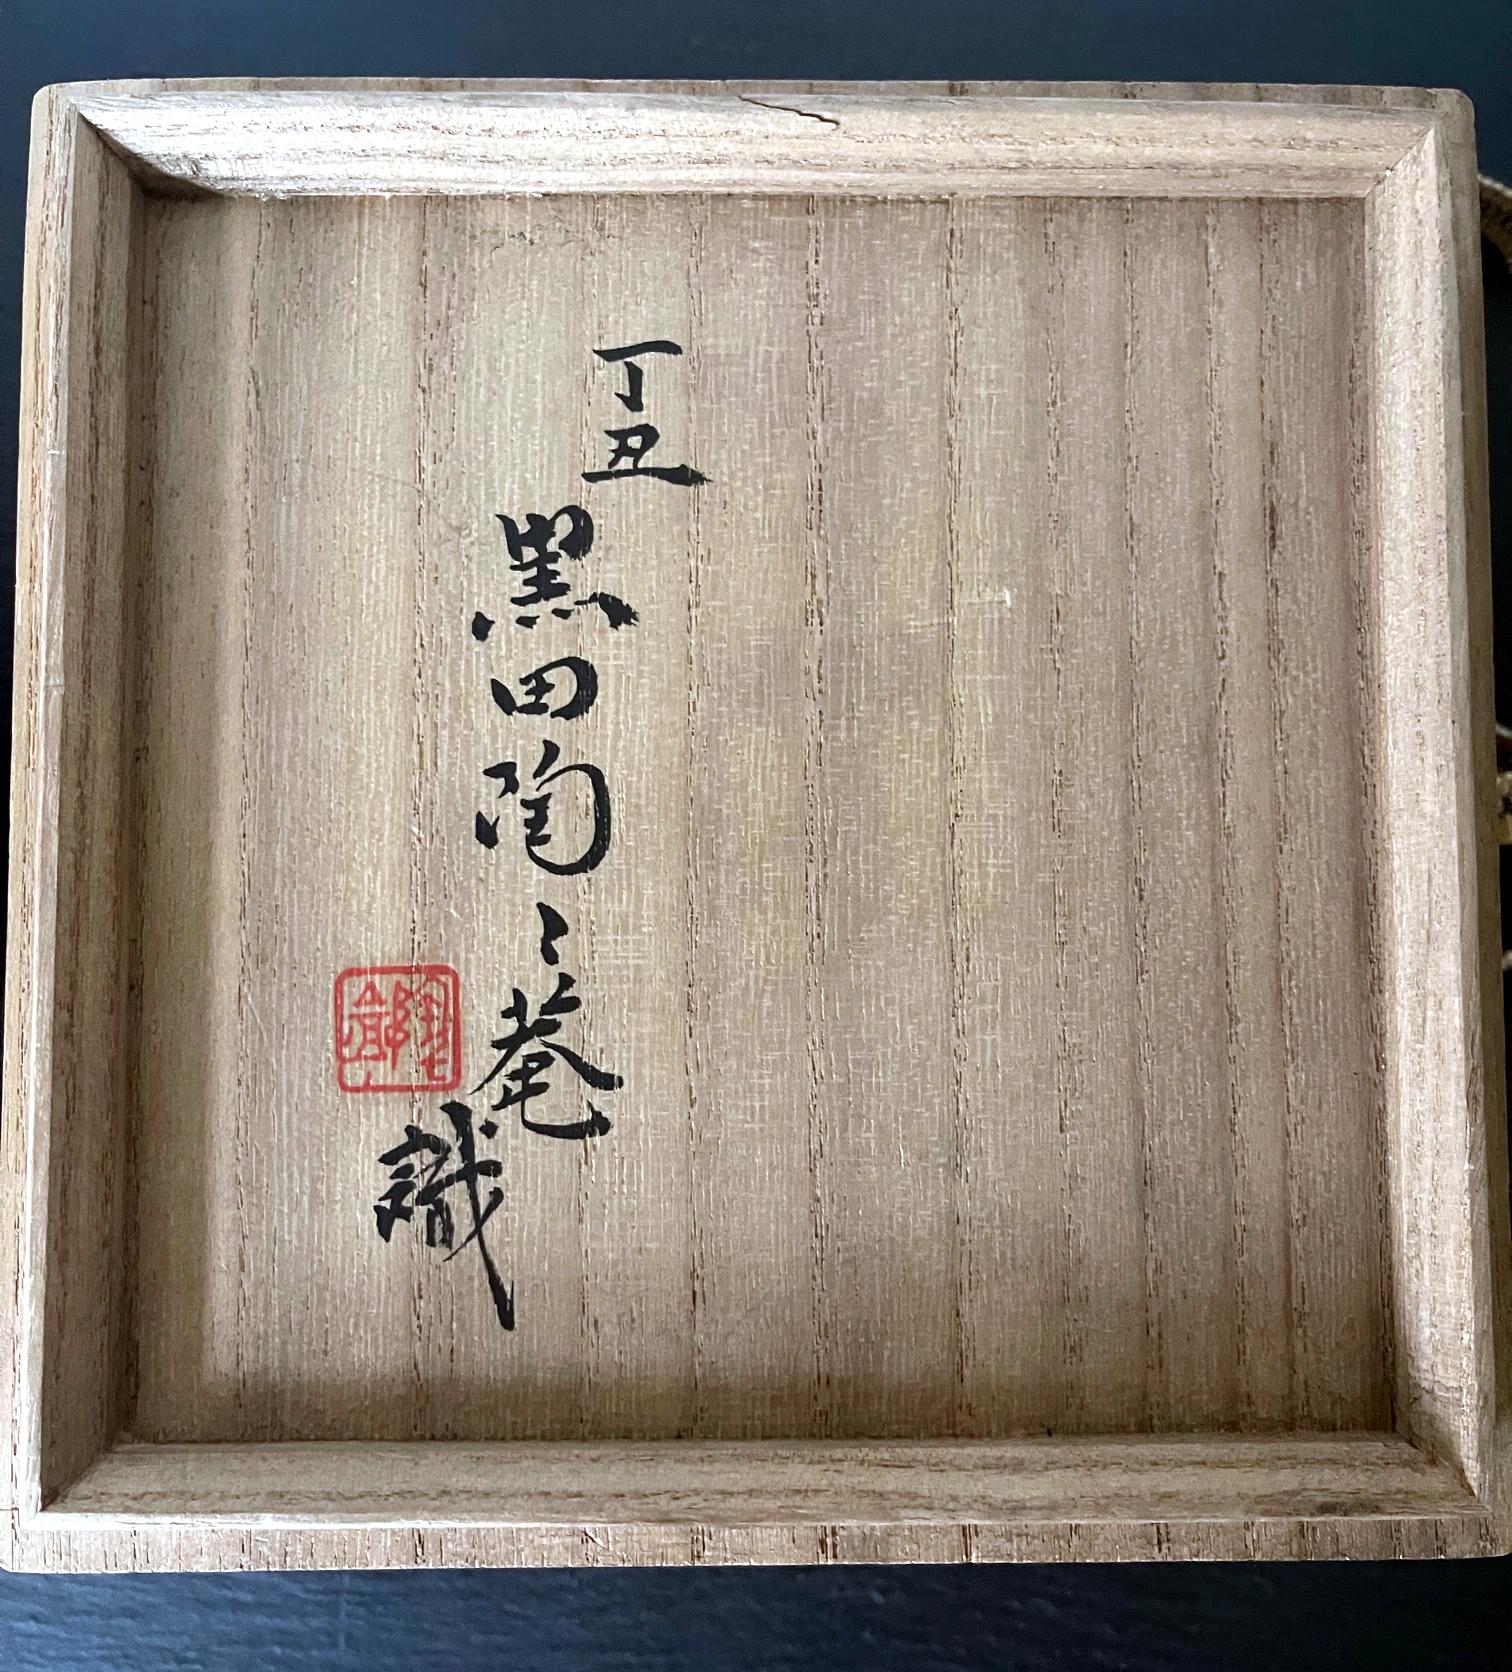 丁丑
黒田陶々菴
識